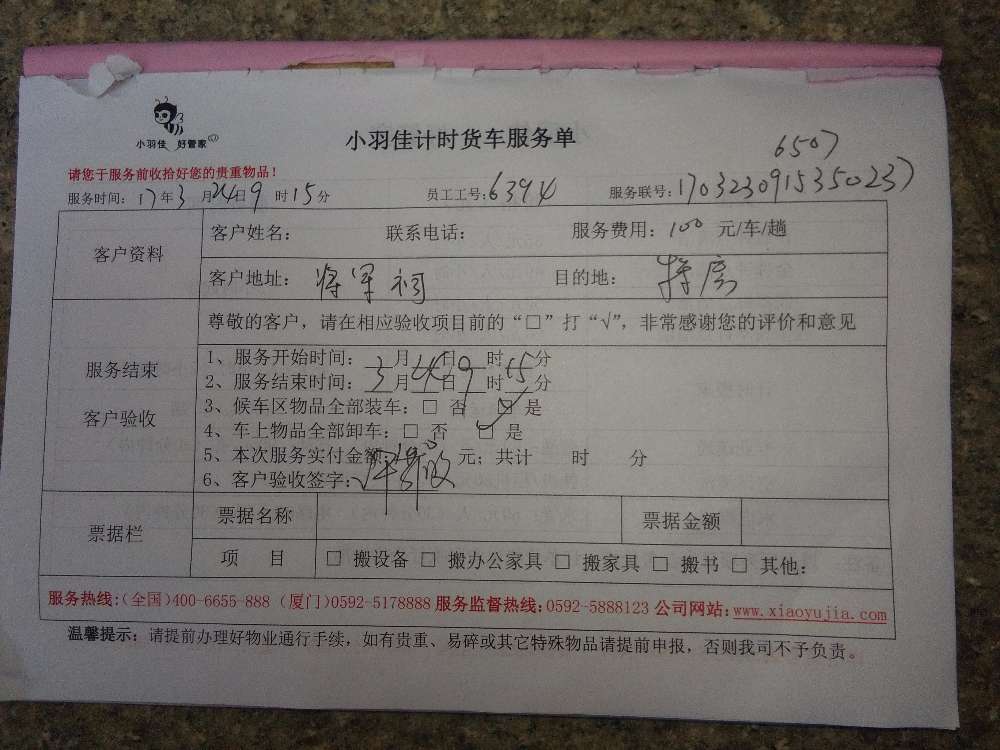 小羽佳 好管家
小羽佳计时货车服务单
6507
请您于服务前收拾好您的贵重物品！
服务时间：17年3月24日9时15分 员工工号：6394 服务联号：1703230915350237
客户资料
客户姓名： 联系电话： 服务费用：100 元/车/趟
客户地址：将军祠 目的地：
尊敬的客户，请在相应验收项目前的“□”打“√”，非常感谢您的评价和意见
服务结束
客户验收
1、服务开始时间：3月24日9时15分
2、服务结束时间：3月 日9时 分
3、候车区物品全部装车：□ 否 ☑ 是
4、车上物品全部卸车：□ 否 □ 是
5、本次服务实付金额： 元；共计 时 分
6、客户验收签字：
票据栏
票据名称 票据金额
项 目 □ 搬设备 □ 搬办公家具 □ 搬家具 □ 搬书 □ 其他：
服务热线：（全国）400-6655-888（厦门）0592-5178888 服务监督热线：0592-5888123 公司网站：www.xiaoyujia.com
温馨提示：请提前办理好物业通行手续，如有贵重、易碎或其它特殊物品请提前申报，否则我司不予负责。